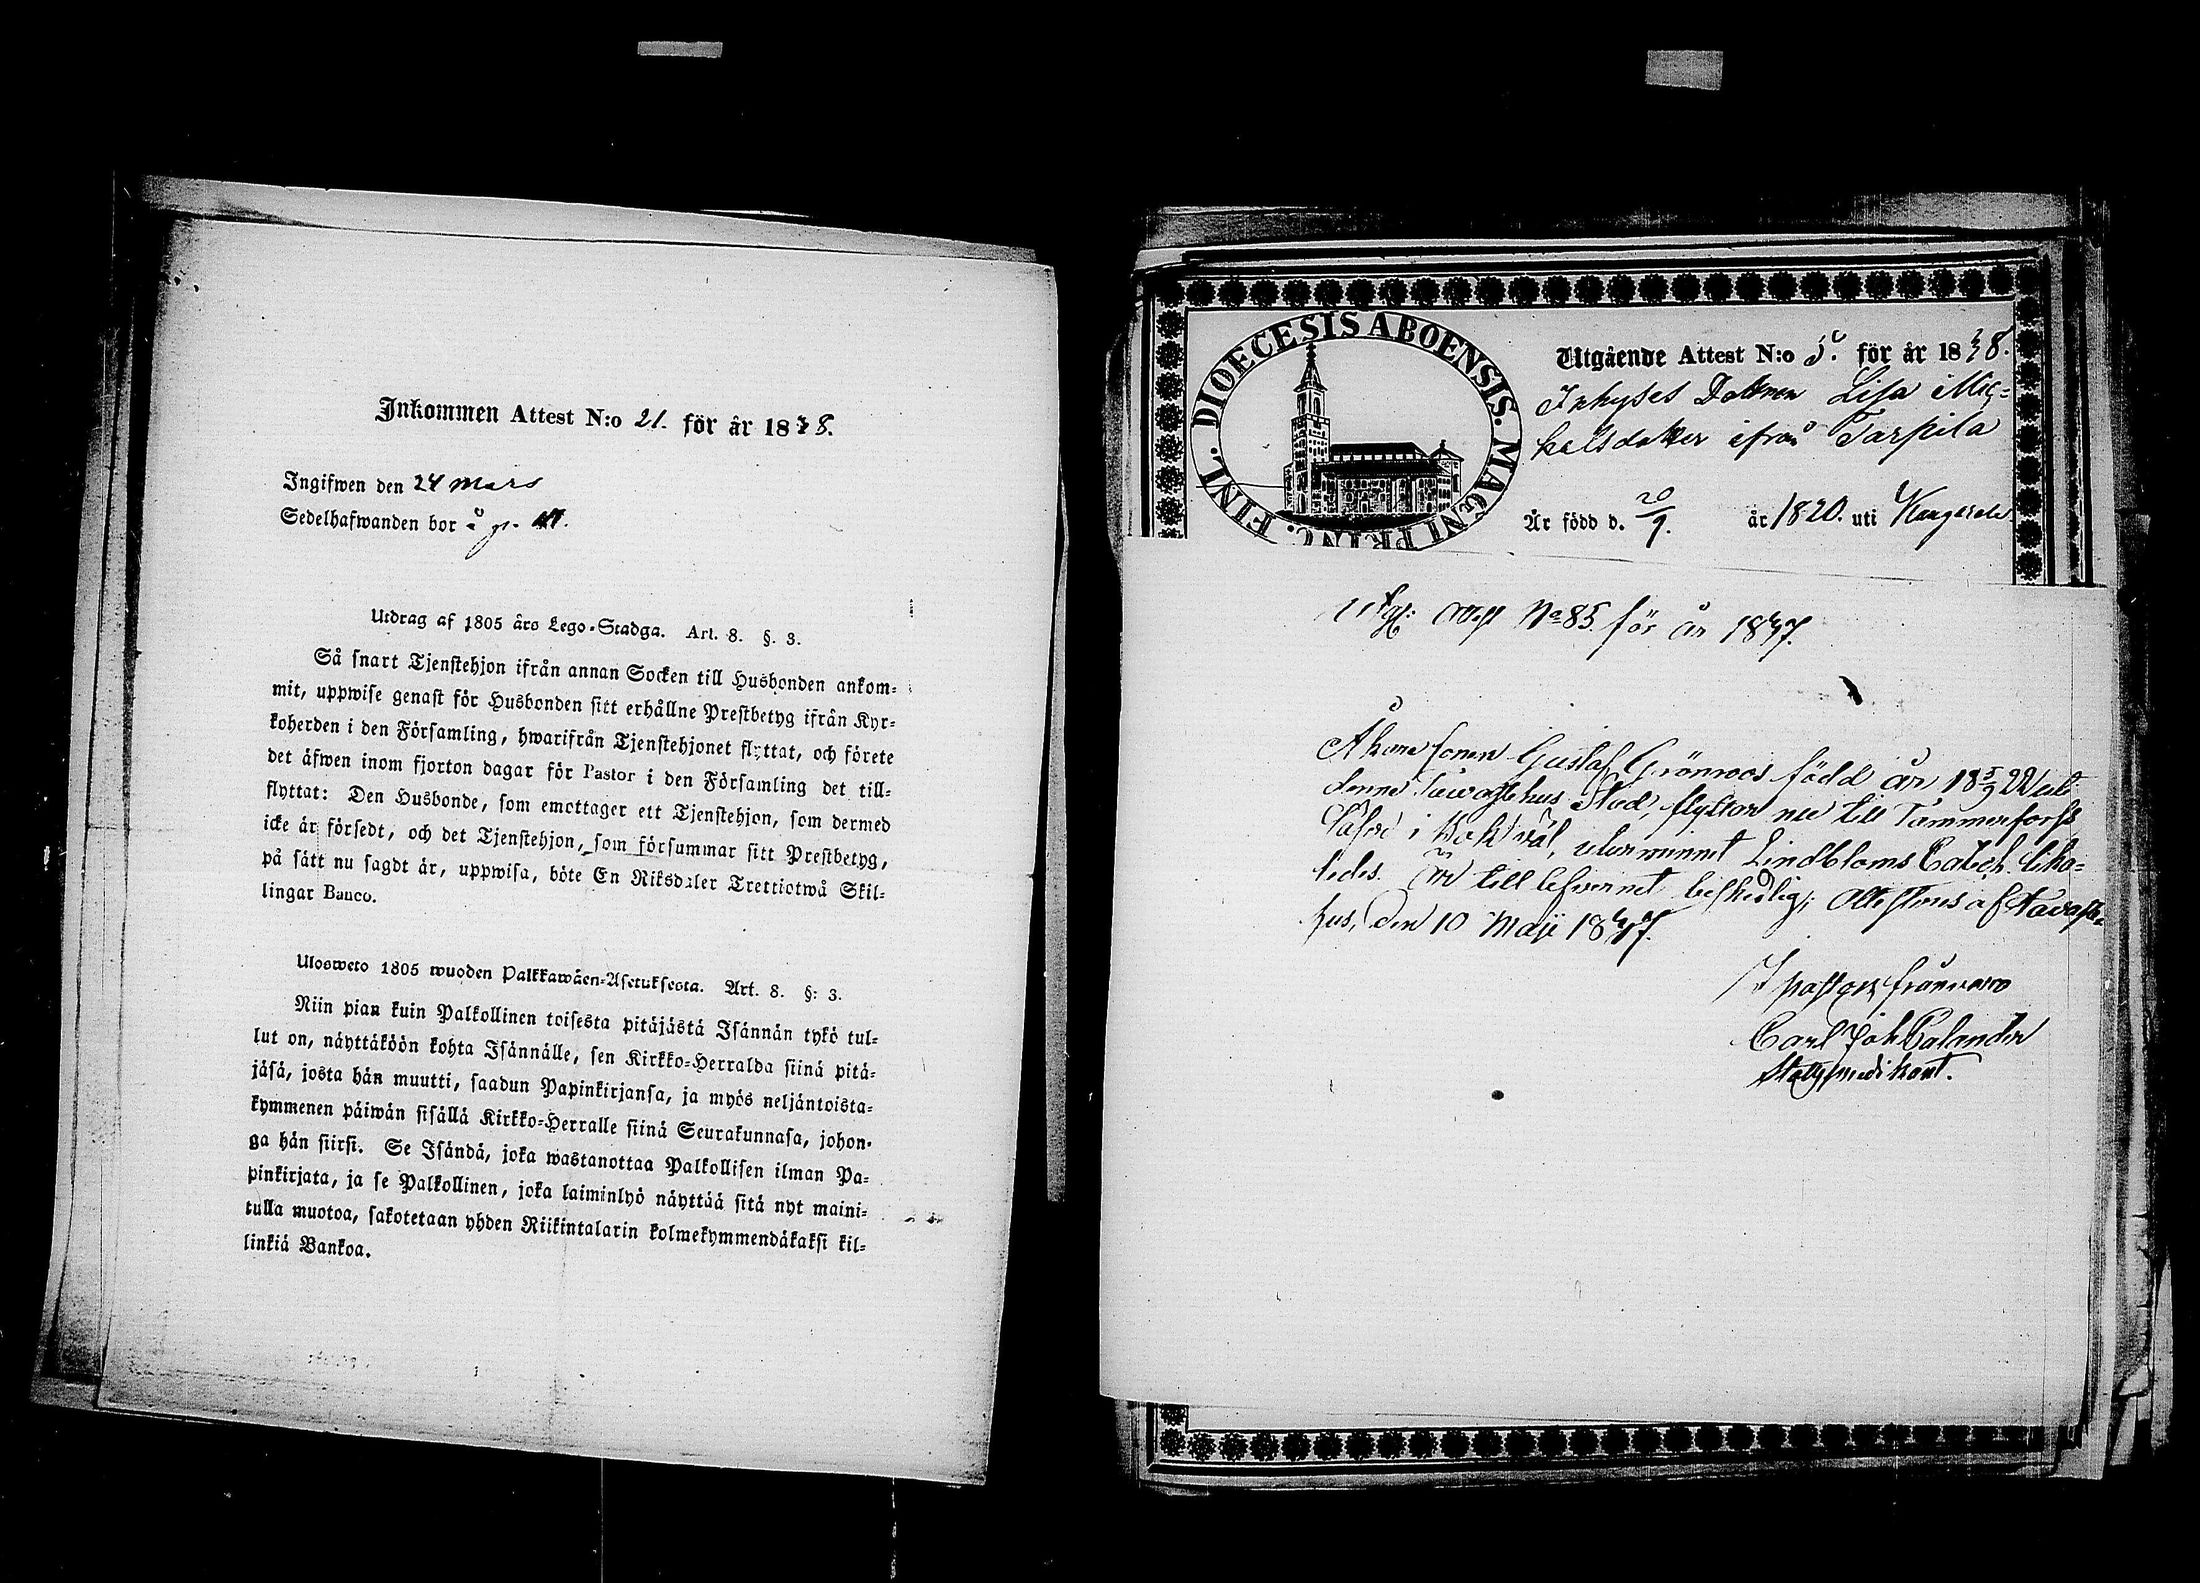 Inkommen Attest N:o 21. för år 1848.
Ingifwen den 24 Mars
Sedelhafwanden bor å
Utdrag af 1805 års Lego-Stadga. Art. 8. §. 3.
Så snart Tjenstehjon ifrån annan Socken till Husbonden ankom-
mit, uppwise genast för Husbonden sitt erhållne Prestbetyg ifrån Kyr-
koherden i den Församling, hwarifrån Tjenstehjonet flyttat, och förete
det äfwen inom fjorton dagar för Pastor i den Församling det till-
flyttat: Den Husbonde, som emottager ett Tjenstehjon, som dermed
icke är försedt, och det Tjenstehjon, som försummar sitt Prestbetyg,
på sätt nu sagdt är, uppwisa, böte En Riksdaler Trettiotwå Skil-
lingar Banco.
Ulosweto 1805 wuoden Palkkawäen-Asetuksesta. Art. 8. §: 3.
Niin pian kuin Palkollinen toisesta pitäjästä Isännän tykö tul-
lut on, näyttäköön kohta Isännälle, sen Kirkko-Herralda siinä pitä-
jäsä, josta hän muutti, saadun Papinkirjansa, ja myös neljäntoista-
kymmenen päiwän sisällä Kirkko-Herralle siinä Seurakunnasa, johon-
ga hän siirsi. Se Isändä, joka wastanottaa Palkollisen ilman Pa-
pinkirjata, ja se Palkollinen, joka laiminlyö näyttää sitä nyt maini-
tulla muotoa, sakotetaan yhden Riikintalarin kolmekymmendäkaksi kil-
linkiä Bankoa.
DIOECESIS ABOENSIS. MAGNI PRINC. FINL.
Utgående Attest N:o 5. för år 1848.
Inhyses Dottren Lisa Mic-
kelsdotter ifrån Tarpila
Är född d. 20/9. år 1820. uti Kangasala
Utg: Att N:o 85. för år 1847.
Åkaresonen Gustaf Grönroos född år 18 5/9 22 uti
denne Tawastehus Stad, flyttar nu till Tammerfors
läser i bok wäl, utur minnet Lindbloms Catech. lika-
ledes. Är till lefwernet beskedlig; Attesteras af Tavaste-
hus, den 10 Maji 1847.
I pastors frånvaro
Carl Joh Calander